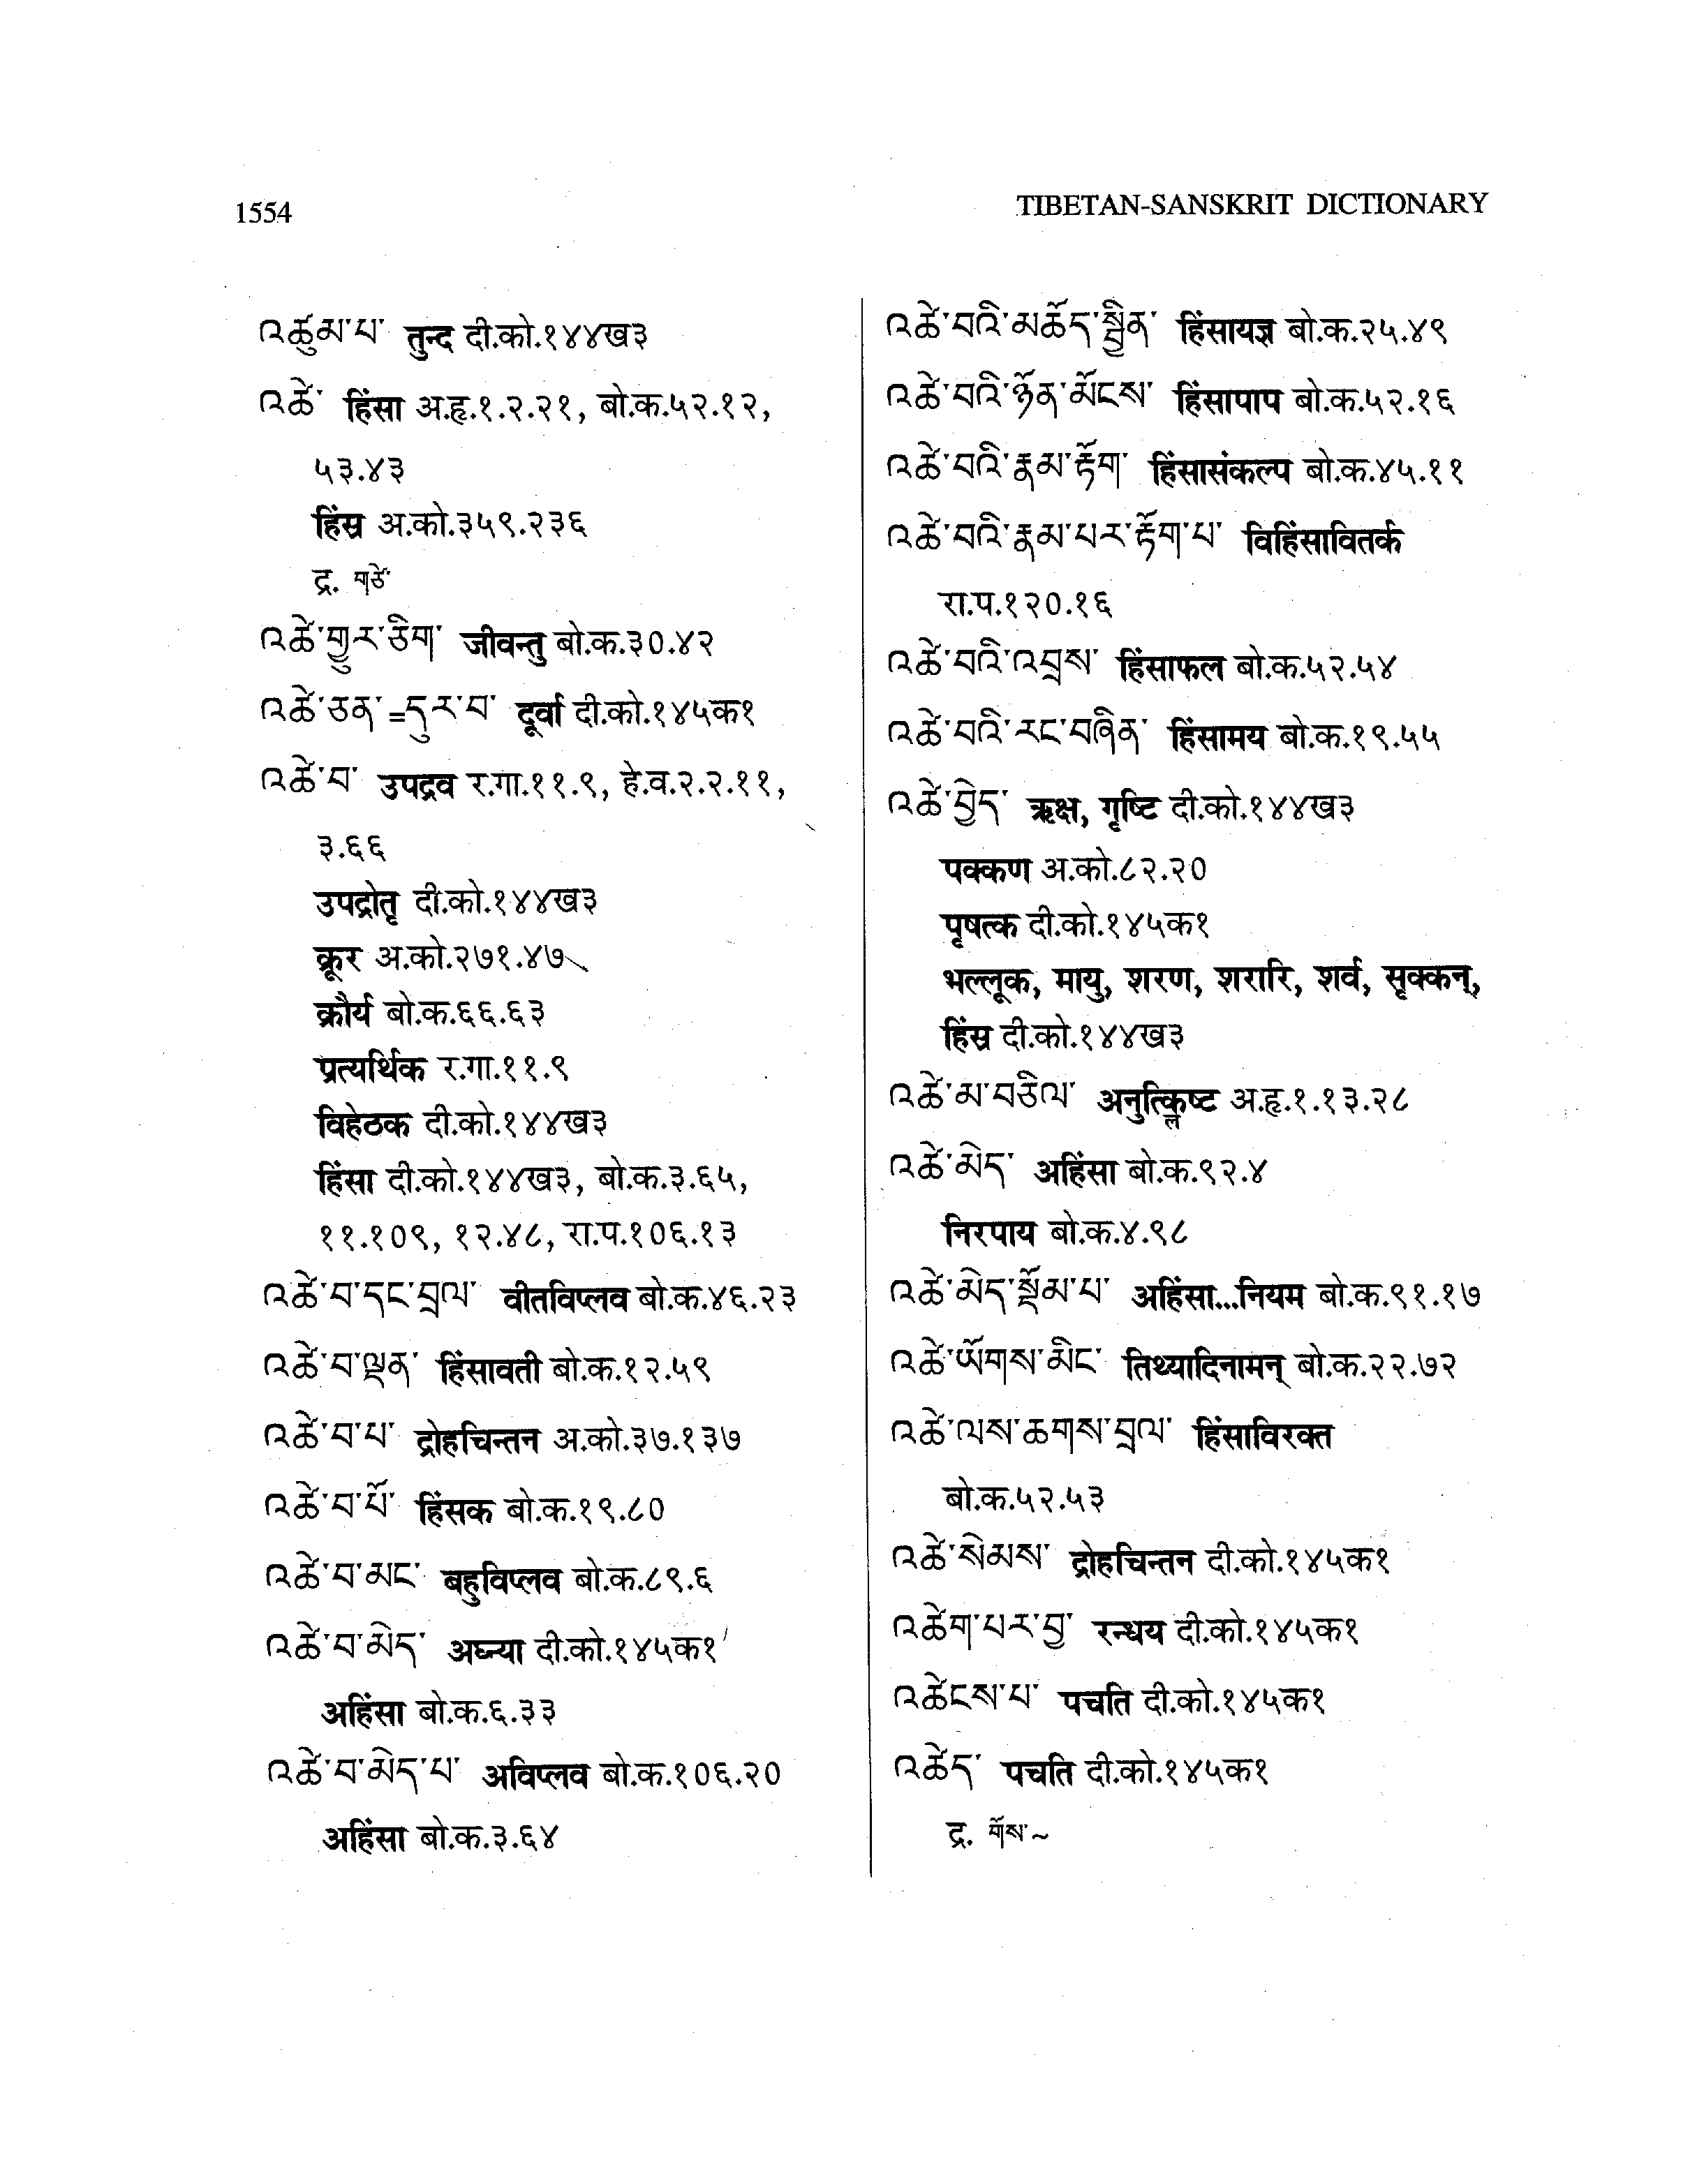 1554
TIBETAN-SANSKRIT DICTIONARY
འཚུམ་པ་ तुन्द दी.को.१४४ख३
འཚེ་ हिंसा अ.हृ.१.२.२१, बो.क.५२.१२,
५३.४३
हिंस्र अ.को.३५९.२३६
द्र. གཙེ་
འཚེ་གྱུར་ཅིག་ जीवन्तु बो.क.३०.४२
འཚེ་ཅན་=དུར་བ་ दूर्वा दी.को.१४५क१
འཚེ་བ་ उपद्रव र.गा.११.९, हे.व.२.२.११,
३.६६
उपद्रोतृ दी.को.१४४ख३
क्रूर अ.को.२७१.४७
क्रौर्य बो.क.६६.६३
प्रत्यर्थिक र.गा.११.९
विहेठक दी.को.१४४ख३
हिंसा दी.को.१४४ख३, बो.क.३.६५,
११.१०९, १२.४८, रा.प.१०६.१३
འཚེ་བ་དང་བྲལ་ वीतविप्लव बो.क.४६.२३
འཚེ་བ་ལྡན་ हिंसावती बो.क.१२.५९
འཚེ་བ་པ་ द्रोहचिन्तन अ.को.३७.१३७
འཚེ་བ་པོ་ हिंसक बो.क.१९.८०
འཚེ་བ་མང་ बहुविप्लव बो.क.८९.६
འཚེ་བ་མེད་ अघ्न्या दी.को.१४५क१
अहिंसा बो.क.६.३३
འཚེ་བ་མེད་པ་ अविप्लव बो.क.१०६.२०
अहिंसा बो.क.३.६४
འཚེ་བའི་མཆོད་སྦྱིན་ हिंसायज्ञ बो.क.२५.४९
འཚེ་བའི་ཉོན་མོངས་ हिंसापाप बो.क.५२.१६
འཚེ་བའི་རྣམ་རྟོག་ हिंसासंकल्प बो.क.४५.११
འཚེ་བའི་རྣམ་པར་རྟོག་པ་ विहिंसावितर्क
रा.प.१२०.१६
འཚེ་བའི་འབྲས་ हिंसाफल बो.क.५२.५४
འཚེ་བའི་རང་བཞིན་ हिंसामय बो.क.१९.५५
འཚེ་བྱེད་ ऋक्ष, गृष्टि दी.को.१४४ख३
पक्कण अ.को.८२.२०
पृषत्क दी.को.१४५क१
भल्लूक, मायु, शरण, शरारि, शर्व, सृक्कन्,
हिंस्र दी.को.१४४ख३
འཚེ་མ་བཅིལ་ अनुत्क्लिष्ट अ.हृ.१.१३.२८
འཚེ་མེད་ अहिंसा बो.क.९२.४
निरपाय बो.क.४.९८
འཚེ་མེད་སྡོམ་པ་ अहिंसा...नियम बो.क.९१.१७
འཚེ་ཡོགས་མིང་ तिथ्यादिनामन् बो.क.२२.७२
འཚེ་ལས་ཆགས་བྲལ་ हिंसाविरक्त
बो.क.५२.५३
འཚེ་སེམས་ द्रोहचिन्तन दी.को.१४५क१
འཚེག་པར་བྱ་ रन्धय दी.को.१४५क१
འཚེངས་པ་ पचति दी.को.१४५क१
འཚེད་ पचति दी.को.१४५क१
द्र. གོས་~